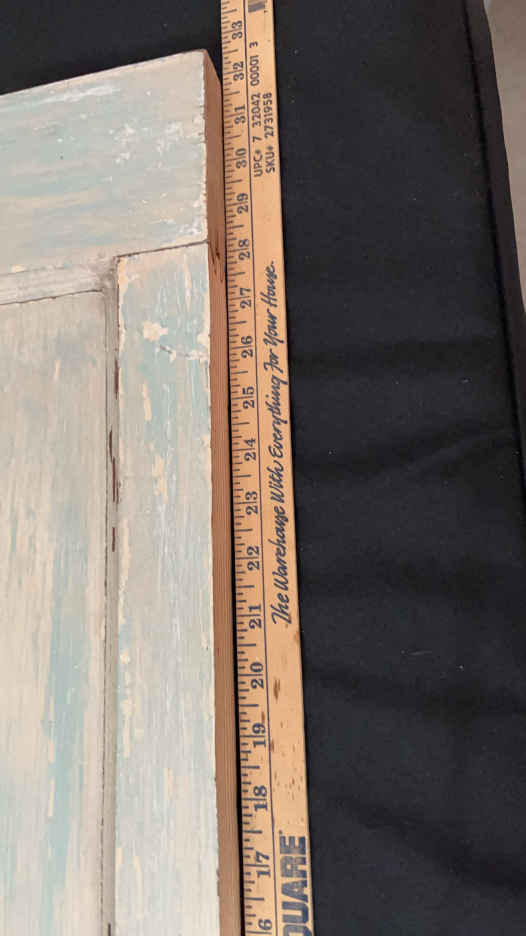 33
32
31
30
29
28
27
26
25
24
23
22
21
20
19
18
17
6
UPC# 7 32042 00001 3
SKU# 2731958
The Warehouse With Everything For Your House.
QUARE